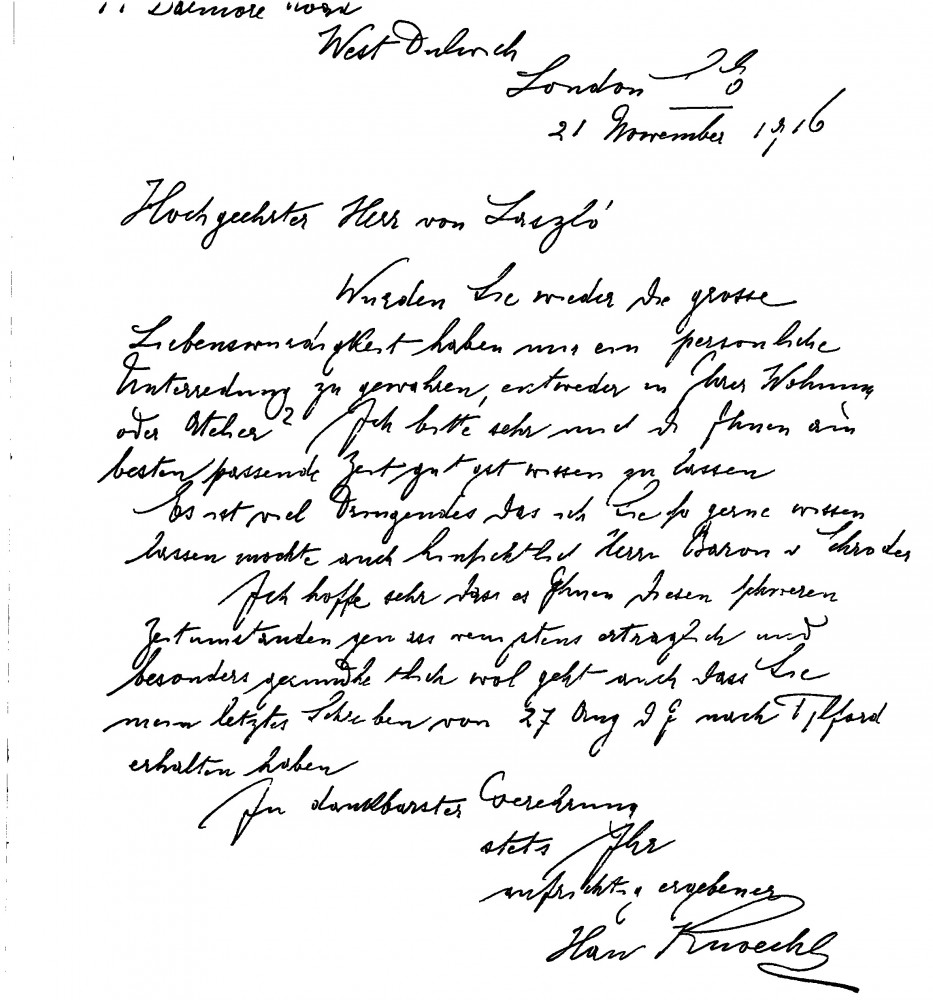 11 Dalmore Road
West Dulwich
London SE
21 November 1916
Hochgeehrter Herr von Laszló
Wurden Sie wieder die grosse
Liebenswurdigkeit haben mir ein personliche
Unterredung zu gewahren, entweder in Ihrer Wohnung
oder Atelier? Ich bitte sehr mich die Ihnen am
besten passende Zeit gutigst wissen zu lassen
Es ist viel Dringendes das ich Sie so gerne wissen
lassen mochte auch hinsichtlich Herrn Baron v Schroder
Ich hoffe sehr dass es Ihnen diesen schweren
Zeitumstanden gemass wenigstens ertraglich und
besonders gesundheitlich wol geht auch dass Sie
mein letztes Schreiben von 27 Aug d J nach Tilford
erhalten haben
In dankbarster Verehrung
stets Ihr
aufrichtig ergebener
Hans